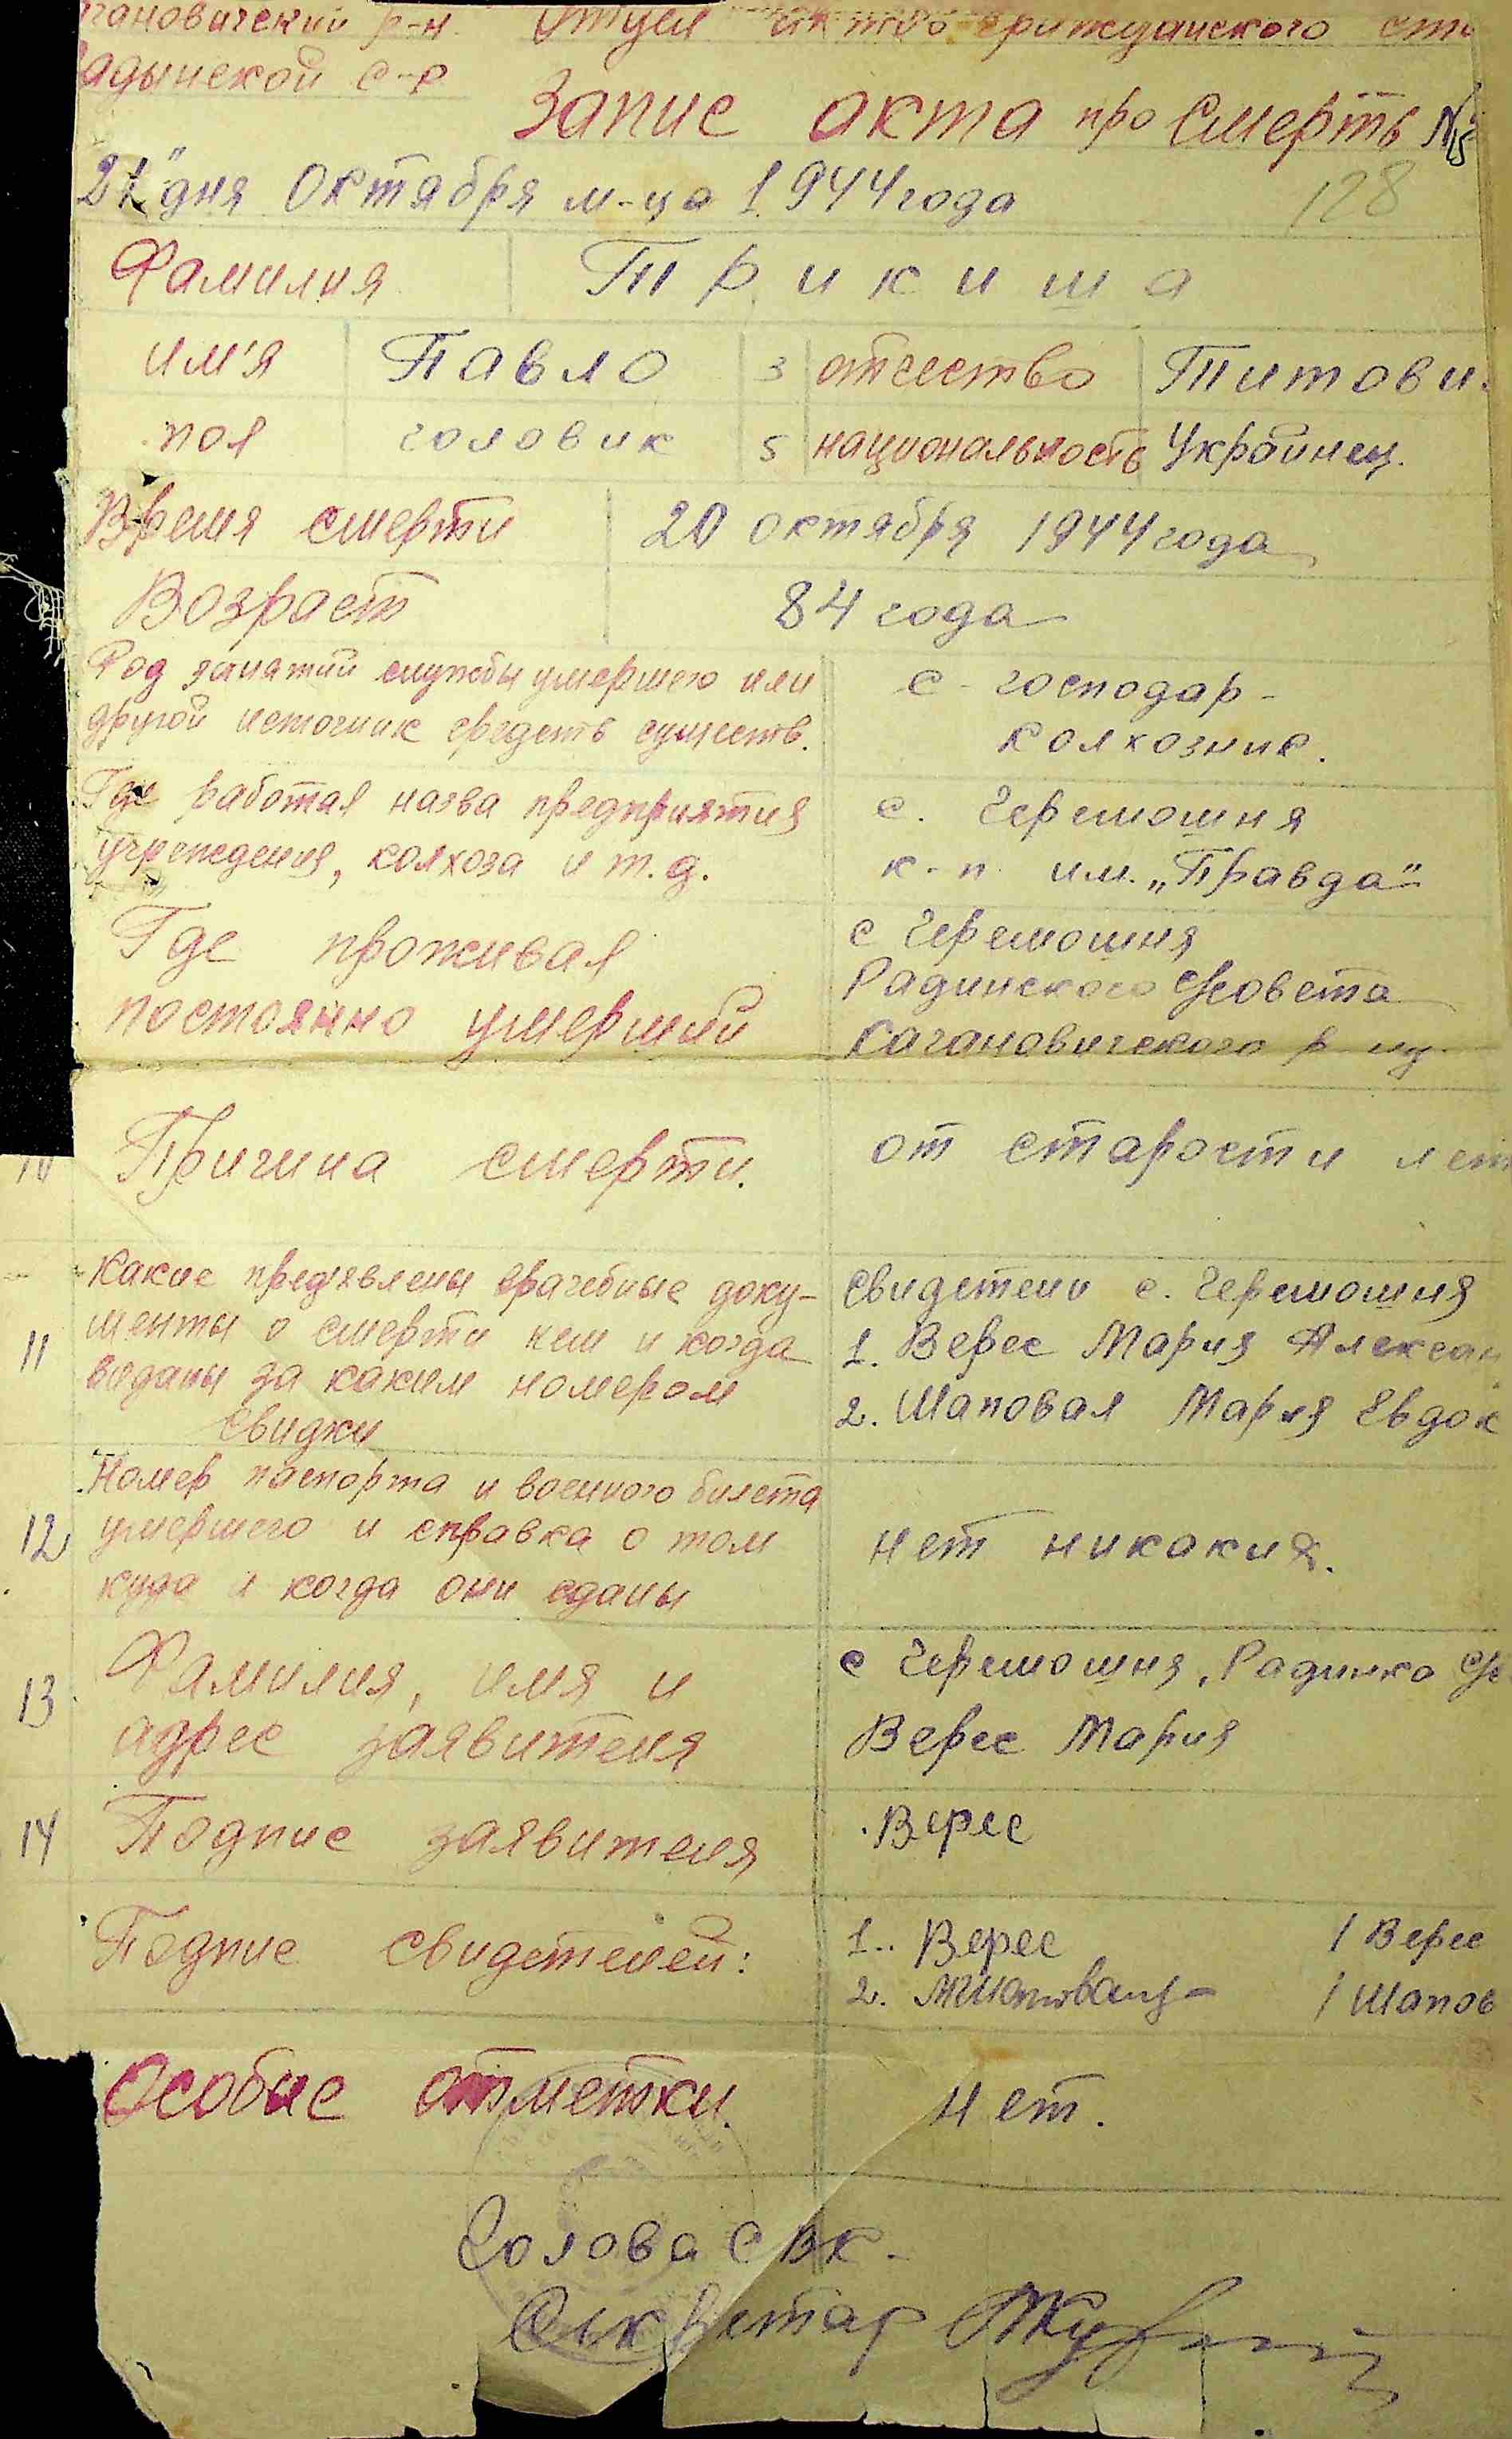 гановичский р-н. Отдел актов гражданского ст
адынской с-р
Запис акта про смерть №15
21" дня октября м-ца 1944 года 128
Фамилия Трикиша
им'я Павло 3 отчество Титови
пол чоловик 5 национальность Украинец.
Время смерти 20 октября 1944 года
Возраст 84 года
Род занятий службы умершего или с-господар-
другой источник средств существ. колхозник.
Где работал назва предприятия с. Черемошня
учреждения, колхоза и т.д. к-п им. „Правда"
Где проживал с Черемошня
Радинского с/совета
постоянно умерший Кагановичского р-ну.
10 Причина смерти. от старости лет
Какие пред'явлены врачебные доку- свидетели с. Черемошня
11 менты о смерти кем и когда 1. Верес Мария Алексан
виданы за каким номером 2. Шаповал Мария Евдок
свидки
Номер паспорта и военного билета
12 умершего и справка о том нет никаких.
куда и когда они сданы
13 Фамилия, имя и с Черемошня, Радинка с/с
адрес заявителя Верес Мария
14 Подпис заявителя Верес
Подпис свидетелей: 1. Верес / Верес
2. / Шапов
Особые отметки. нет.
Голова СВК-
Секретар